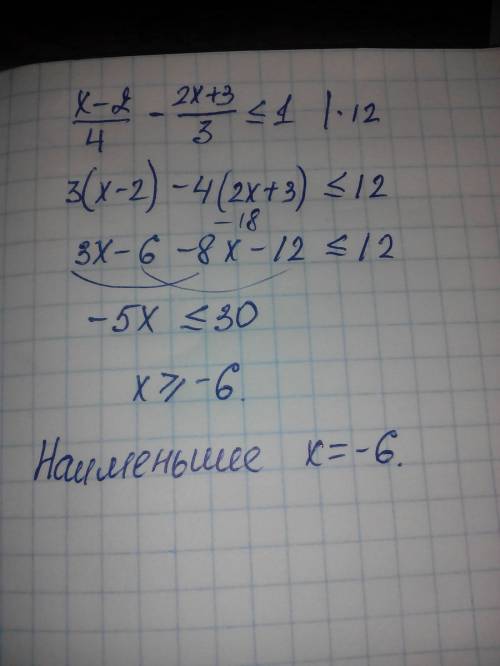 (x-2)/4 - (2x+3)/3 ≤ 1 |·12
3(x-2) -4(2x+3) ≤12
-18
3x-6 -8x-12 ≤12
-5x ≤30
x ⩾ -6.
Наименьшее x=-6.